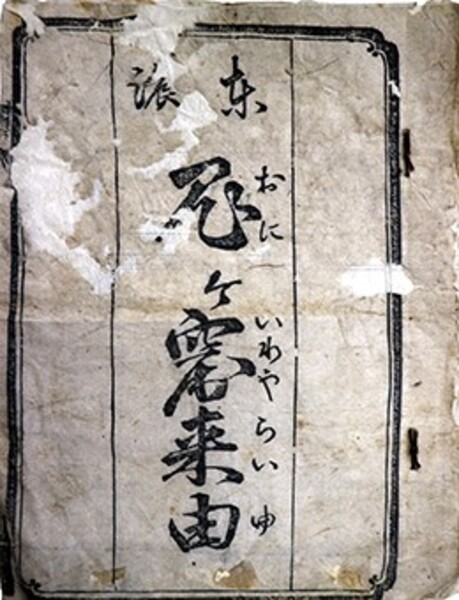 東讃
鬼ヶ窟来由
おに いわやらいゆ